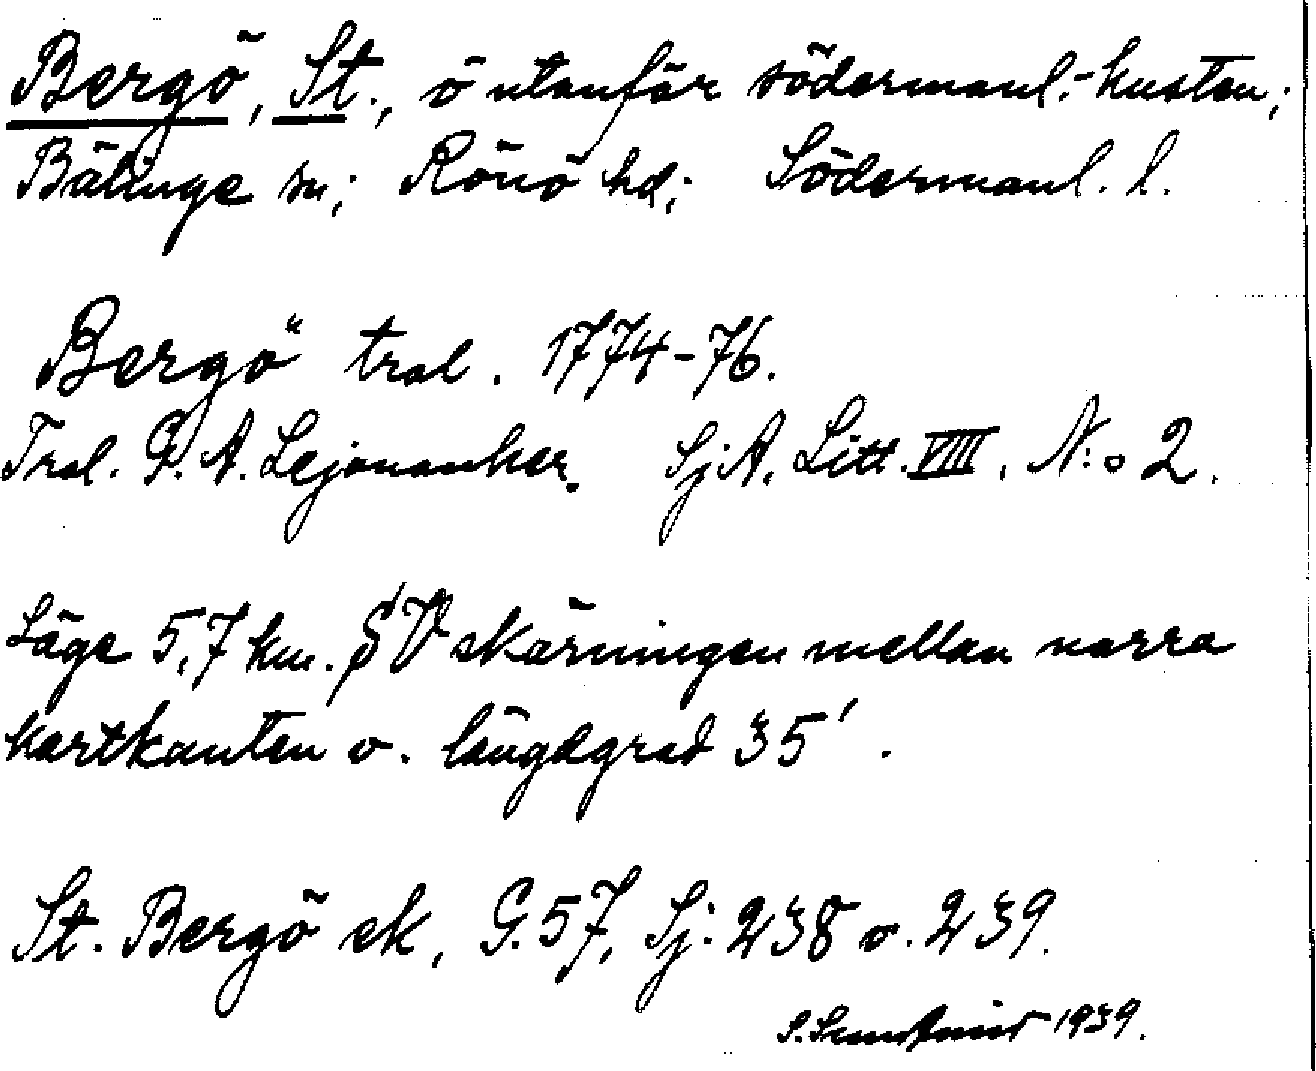 Bergö, St., ö utanför södermanl.-kusten;
Bälinge sn; Rönö hd; Södermanl. l.
Bergö" tral. 1774-76.
Tral. G. A. Lejonanker. SjA. Litt. VIII. N:o 2.
Läge 5,7 km. SV skärningen mellan norra
kartkanten o. längdgrad 35′.
St. Bergö ek, G. 57, Sj: 238 o. 239.
S. 1939.